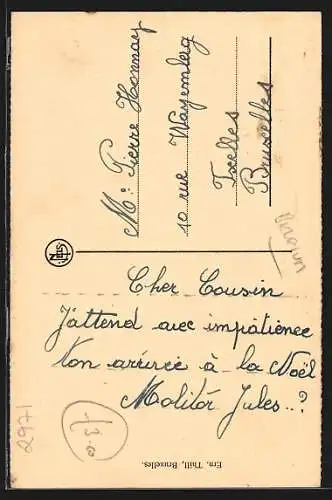 Mr. Pierre Honnay
10 rue Wayemberg
Ixelles
Bruxelles
NELS
Cher Cousin
J'attend avec impatience
ton arrivée à la Noël
Molitor Jules..?
Ern. Thill, Bruxelles.
2971